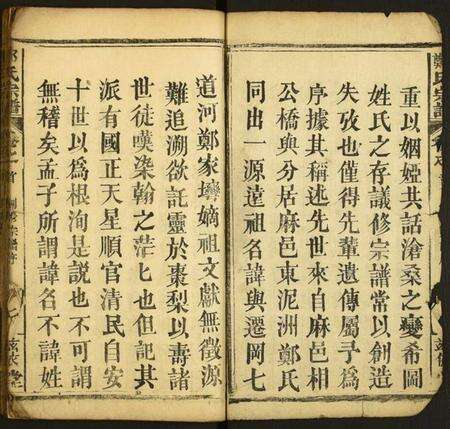 重以姻婭共話滄桑之變希岡
姓氏之存議修宗譜常以創造
失攷也僅得先輩遺傳屬予為
序據其稱述先世來自麻邑相
公橋與分居麻邑東泥洲鄭氏
同出一源達祖名諱與遷岡七
道河鄭家塆嫡祖文獻無徵源
難追溯欲託靈於棗梨以壽諸
世徒嘆染翰之茫匕也但記其
派有國正天星順官清民自安
十世以為根洵是說也不可謂
無稽矣孟子所謂諱名不諱姓
鄭氏宗譜